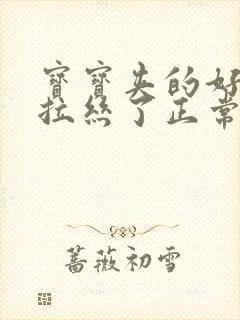 寶寶夹的好
拉絲了正常
蔷薇初雪